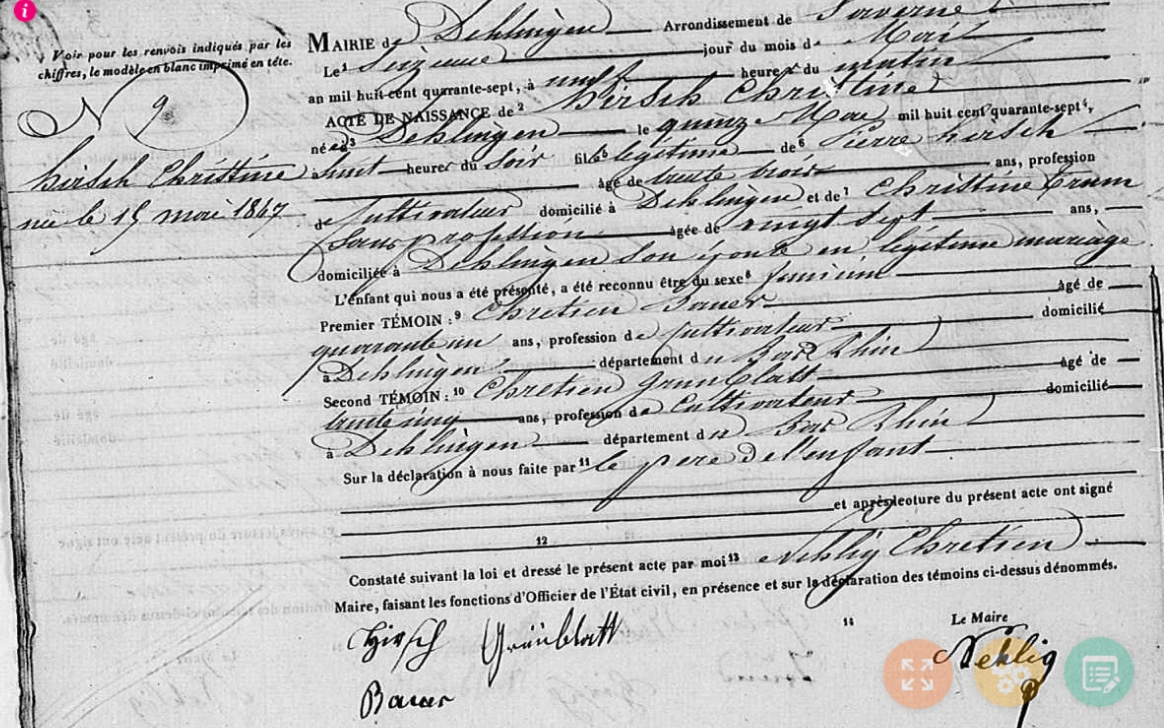 Voir pour les renvois indiqués par les
chiffres, le modèle en blanc imprimé en tête.
N 9
hirsch Christine
née le 15 mai 1847
MAIRIE de Dehlingen Arrondissement de Saverne
Le¹ Seizieme jour du mois de Mai
an mil huit cent quarante-sept, à neuf heures du matin
ACTE DE NAISSANCE de² hirsch Christine
née à³ Dehlingen le quinze Mai mil huit cent quarante-sept⁴,
à huit heures du Soir fille⁵ légitime de⁶ Pierre hirsch
âgé de trente trois ans, profession
de Cultivateur domicilié à Dehlingen et de⁷ Christine
Sans profession âgée de vingt sept ans,
domiciliée à Dehlingen Son épouse en légitime mariage
L'enfant qui nous a été présenté, a été reconnu être du sexe⁸ féminin
Premier TÉMOIN :⁹ Chretien Bauer âgé de
quarante un ans, profession de Cultivateur domicilié
à Dehlingen département du Bas Rhin
Second TÉMOIN :¹⁰ Chretien Grünblatt âgé de
trente cinq ans, profession de Cultivateur domicilié
à Dehlingen département du Bas Rhin
Sur la déclaration à nous faite par¹¹ le pere de l'enfant
et après lecture du présent acte ont signé
12
Constaté suivant la loi et dressé le présent acte par moi¹³ Nehlig Chretien
Maire, faisant les fonctions d'Officier de l'État civil, en présence et sur la déclaration des témoins ci-dessus dénommés.
14 Le Maire
Hirsch Grünblatt Nehlig
Bauer